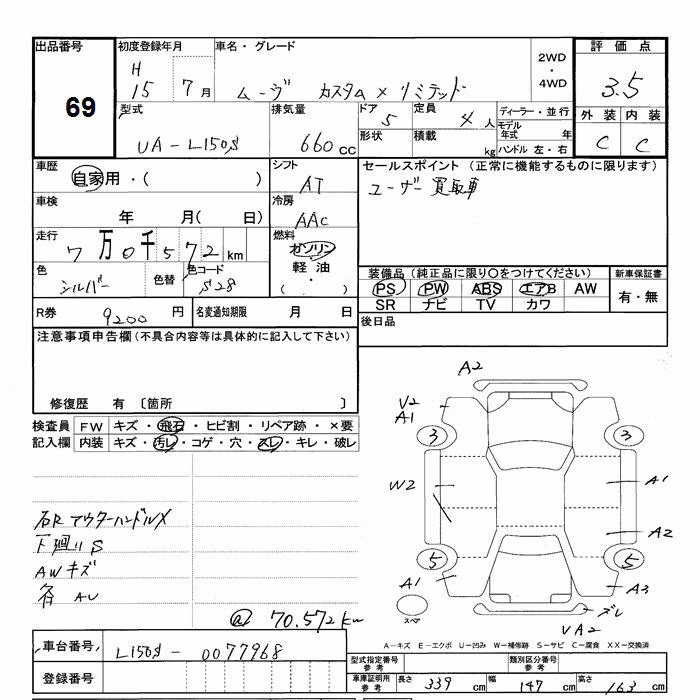 出品番号 初度登録年月 車名・グレード 2WD・4WD 評価点
69 H15 7月 ムーヴ カスタムXリミテッド 3.5
型式 排気量 ドア 定員 ディーラー・並行 外装 内装
UA-L150S 660cc 5 4人 モデル年式 年 C C
形状 積載 kg ハンドル 左・右
車歴 シフト セールスポイント (正常に機能するものに限ります)
自家用・( ) AT ユーザー買取車
車検 冷房
年 月( 日) AAC
走行 燃料
7万0千572km ガソリン
軽油
・( )
色 色替 色コード 装備品 (純正品に限り○をつけてください) 新車保証書
シルバー S28 PS PW ABS エアB AW 有・無
SR ナビ TV カワ
R券 9200円 名変通知期限 月 日 後日品
注意事項申告欄(不具合内容等は具体的に記入して下さい)
修復歴 有 〔箇所 〕
検査員 FW キズ・飛石・ヒビ割・リペア跡・×要
記入欄 内装 キズ・汚レ・コゲ・穴・スレ・キレ・破レ
A2
V2
A1
3 3
W2 A1
A2
5 5
A1 A3
スペア ズレ
VA2
右Rアウターハンドル×
下廻リS
AWキズ
各AU
@ 70.572km
A-キズ E-エクボ U-凹み W-補修跡 S-サビ C-腐食 XX-交換済
車台番号 L150S-0077968
型式指定番号 参考 類別区分番号 参考
登録番号
車庫証明用 参考 長さ 339cm 幅 147cm 高さ 163cm